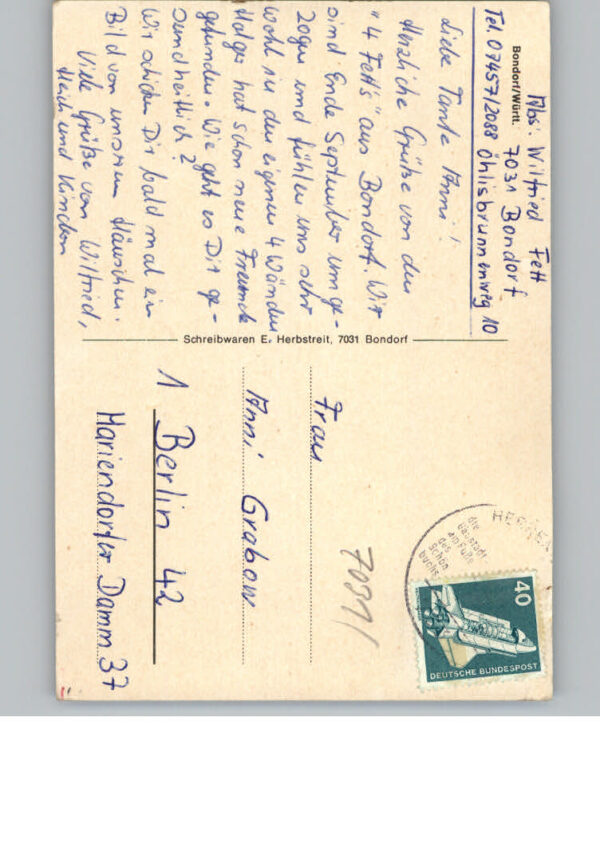 Abs: Wilfried Fett
Bondorf/Württ.
7031 Bondorf
Tel. 07457/2088 Öhlisbrunnenweg 10
Liebe Tante Anni!
Herzliche Grüße von den
"4 Fett's" aus Bondorf. Wir
sind Ende September umge-
zogen und fühlen uns sehr
wohl in den eigenen 4 Wänden
Holger hat schon neue Freunde
gefunden. Wie geht es Dir ge-
sundheitlich?
Wir schicken Dir bald mal ein
Bild von unserem Häuschen.
Viele Grüße von Wilfried,
und Kindern
Schreibwaren E. Herbstreit, 7031 Bondorf
Frau
Anni Grabow
1 Berlin 42
Mariendorfer Damm 37
7031/
die
am Fuße
des
Schön
buchs
40
DEUTSCHE BUNDESPOST